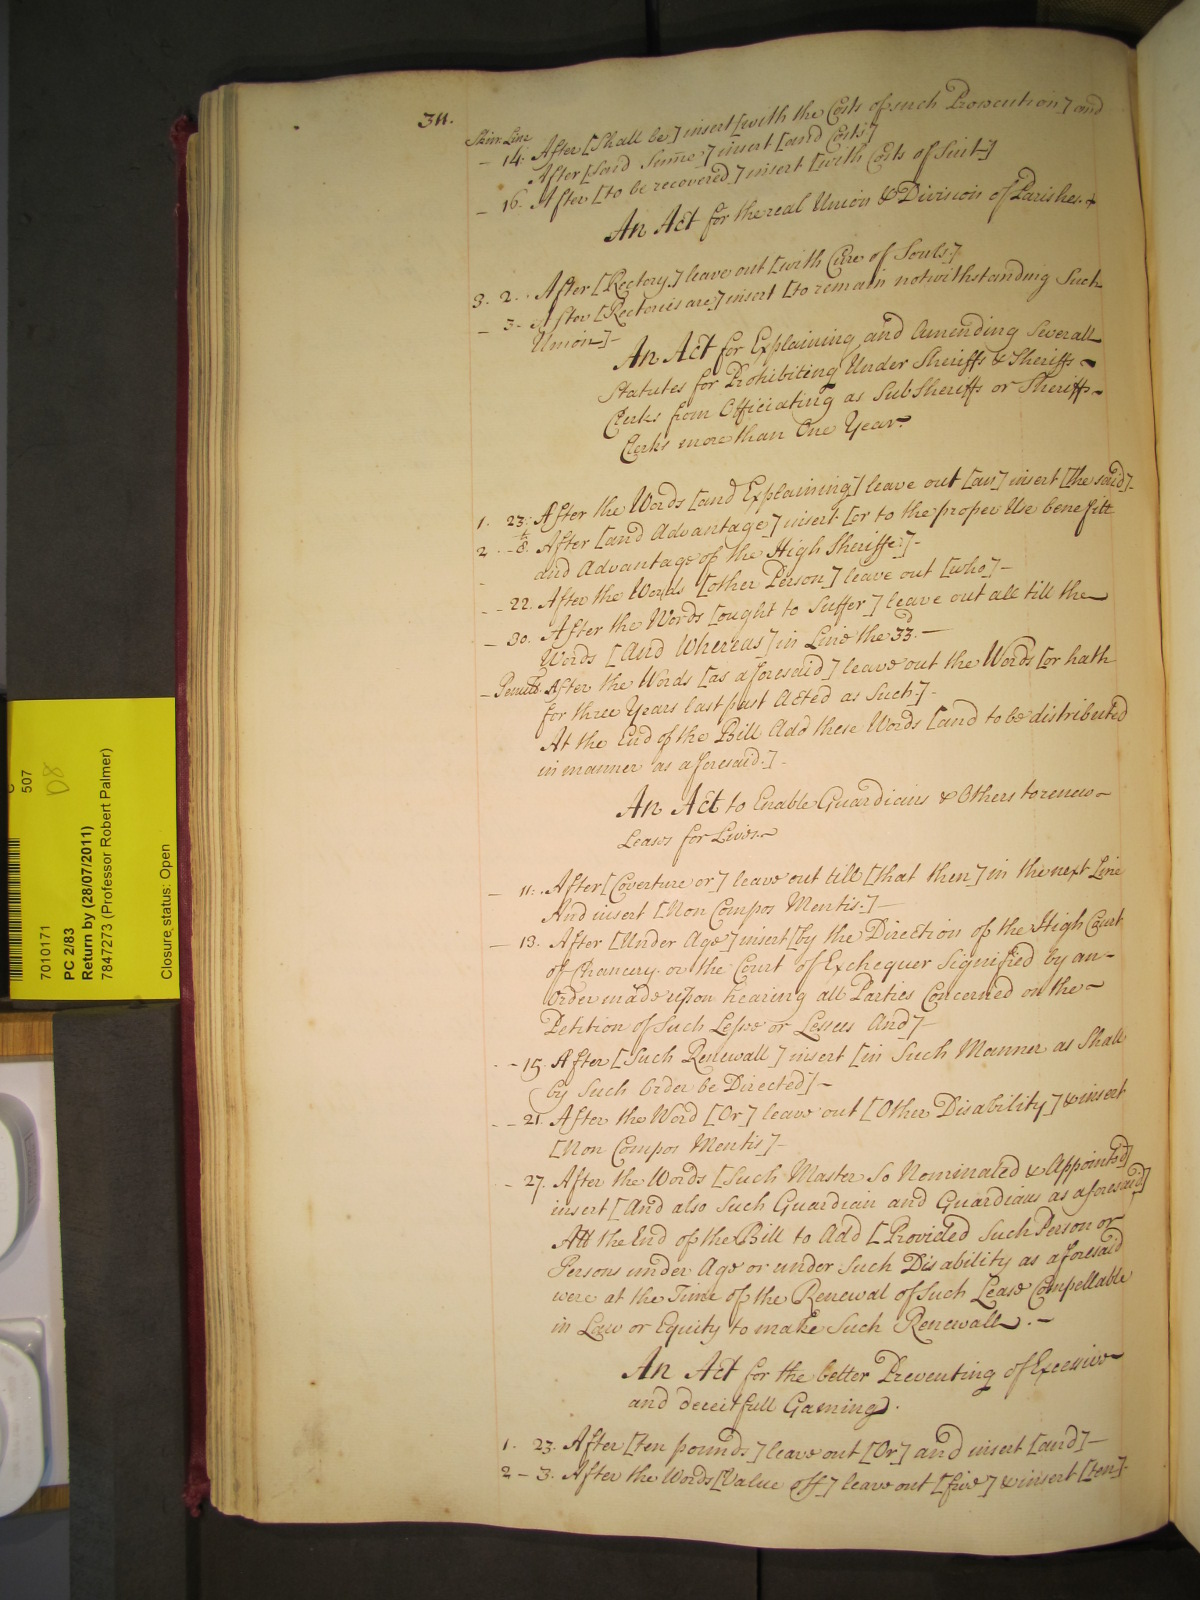 34.
Skin Line
- 14. After [Shall be] insert [with the Costs of such Prosecution] and
After [Said Sume] insert [and Costs]
- 16. After [to be recovered] insert [with Costs of Suit.]
An Act for the real Union & Division of Parishes.
3. 2. After [Rectory,] leave out [with Cure of Souls.]
- 3. After [Rectories are] insert [to remain notwithstanding Such
Union.]-
An Act for Explaining and Amending Severall
Statutes for Prohibiting Under Sheriffs & Sheriffs
Clerks from Officiating as SubSheriffs or Sheriffs
Clerks more than One Year.
1. 23. After the Words [and Explaining] leave out [an] insert [the said]-
2. - 8. After [and Advantage] insert [or to the proper Use benefitt
and Advantage of the High Sheriffe.]-
- - 22. After the Words [other Person] leave out [who]-
- 30. After the Words [ought to Suffer] leave out all till the
Words [And Whereas] in Line the 33d. -
- Penult. After the Words [as aforesaid] leave out the Words [or hath
for three Years last past Acted as Such.]-
At the End of the Bill Add these Words [and to be distributed
in manner as aforesaid.]-
An Act to Enable Guardians & Others to renew
Leases for Lives.
- 11. After [Coverture or] leave out till [that then] in the next Line
And insert [Non Compos Mentis.]-
- 13. After [Under Age] insert [by the Direction of the High Court
of Chancery or the Court of Exchequer Signified by an
Order made upon hearing all Parties Concerned on the
Petition of Such Lessee or Lessees And]-
- 15. After [Such Renewall] insert [in Such Manner as Shall
by Such Order be Directed]-
- - 21. After the Word [Or] leave out [Other Disability] & insert
[Non Compos Mentis]-
- 27. After the Words [Such Master So Nominated & Appointed]
insert [And also Such Guardian and Guardians as aforesaid]
Att the End of the Bill to Add [Provided Such Person or
Persons under Age or under Such Disability as aforesaid
were at the Time of the Renewal of Such Lease Compellable
in Law or Equity to make Such Renewall. -
An Act for the better Preventing of Excessive
and deceitfull Gaming.
1. 23. After [ten pounds] leave out [Or] and insert [and]-
2 - 3. After the Words [Value off] leave out [five] & insert [ten]-
507
D8
7010171
PC 2/83
Return by (28/07/2011)
7847273 (Professor Robert Palmer)
Closure status: Open